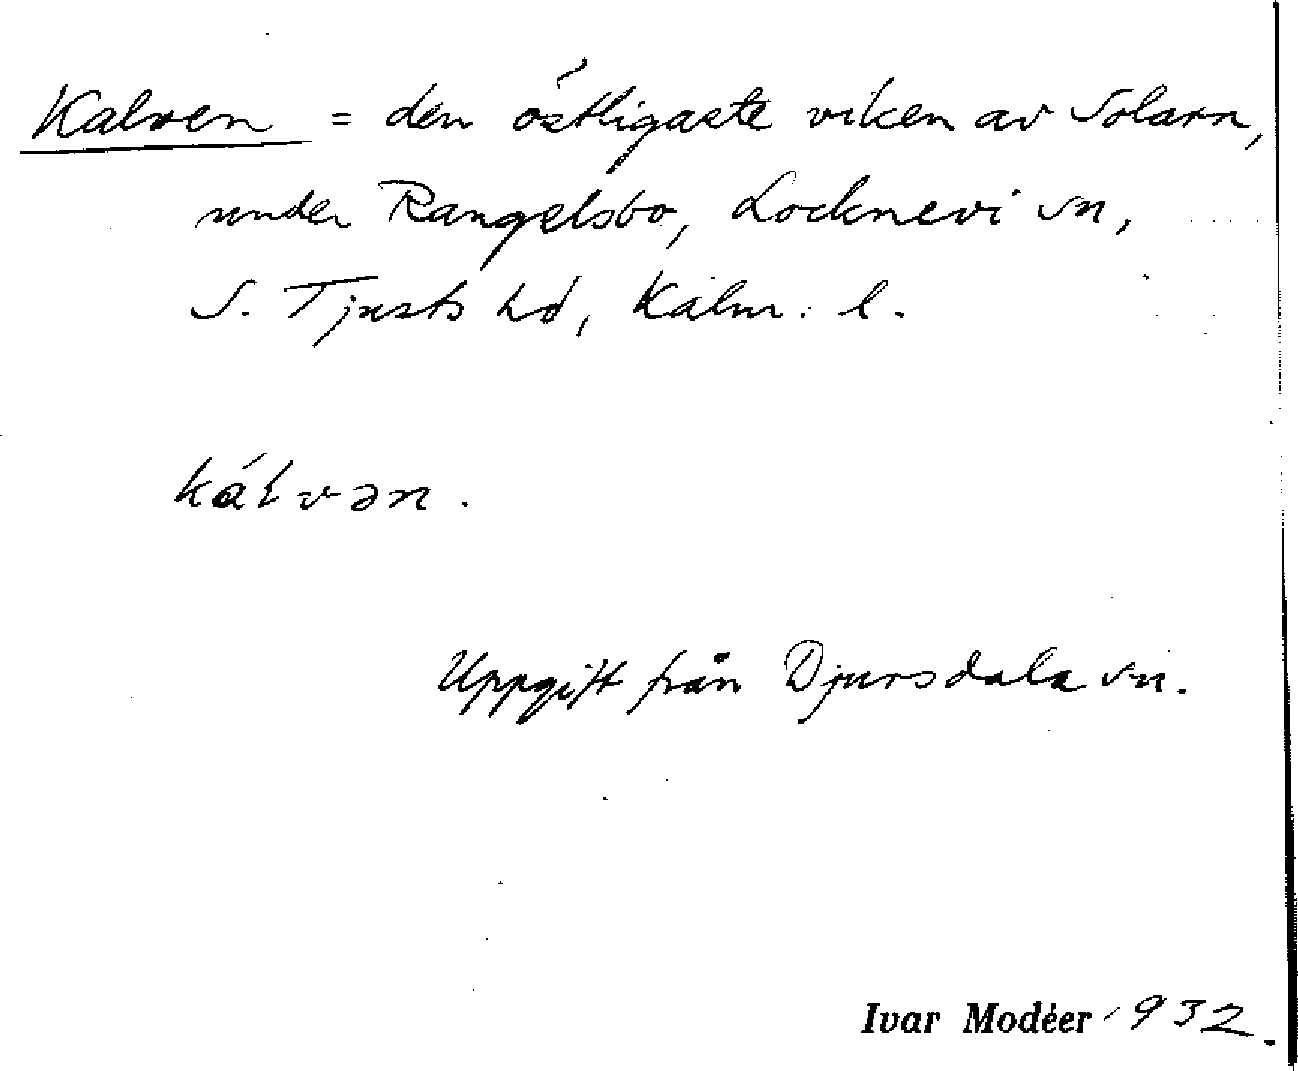 Kalven = den östligaste viken av Solarn,
under Rangelsbo, Locknevi sn,
S. Tjusts hd, Kalm. l.
kálvən.
Uppgift från Djursdala sn.
Ivar Modéer 1932